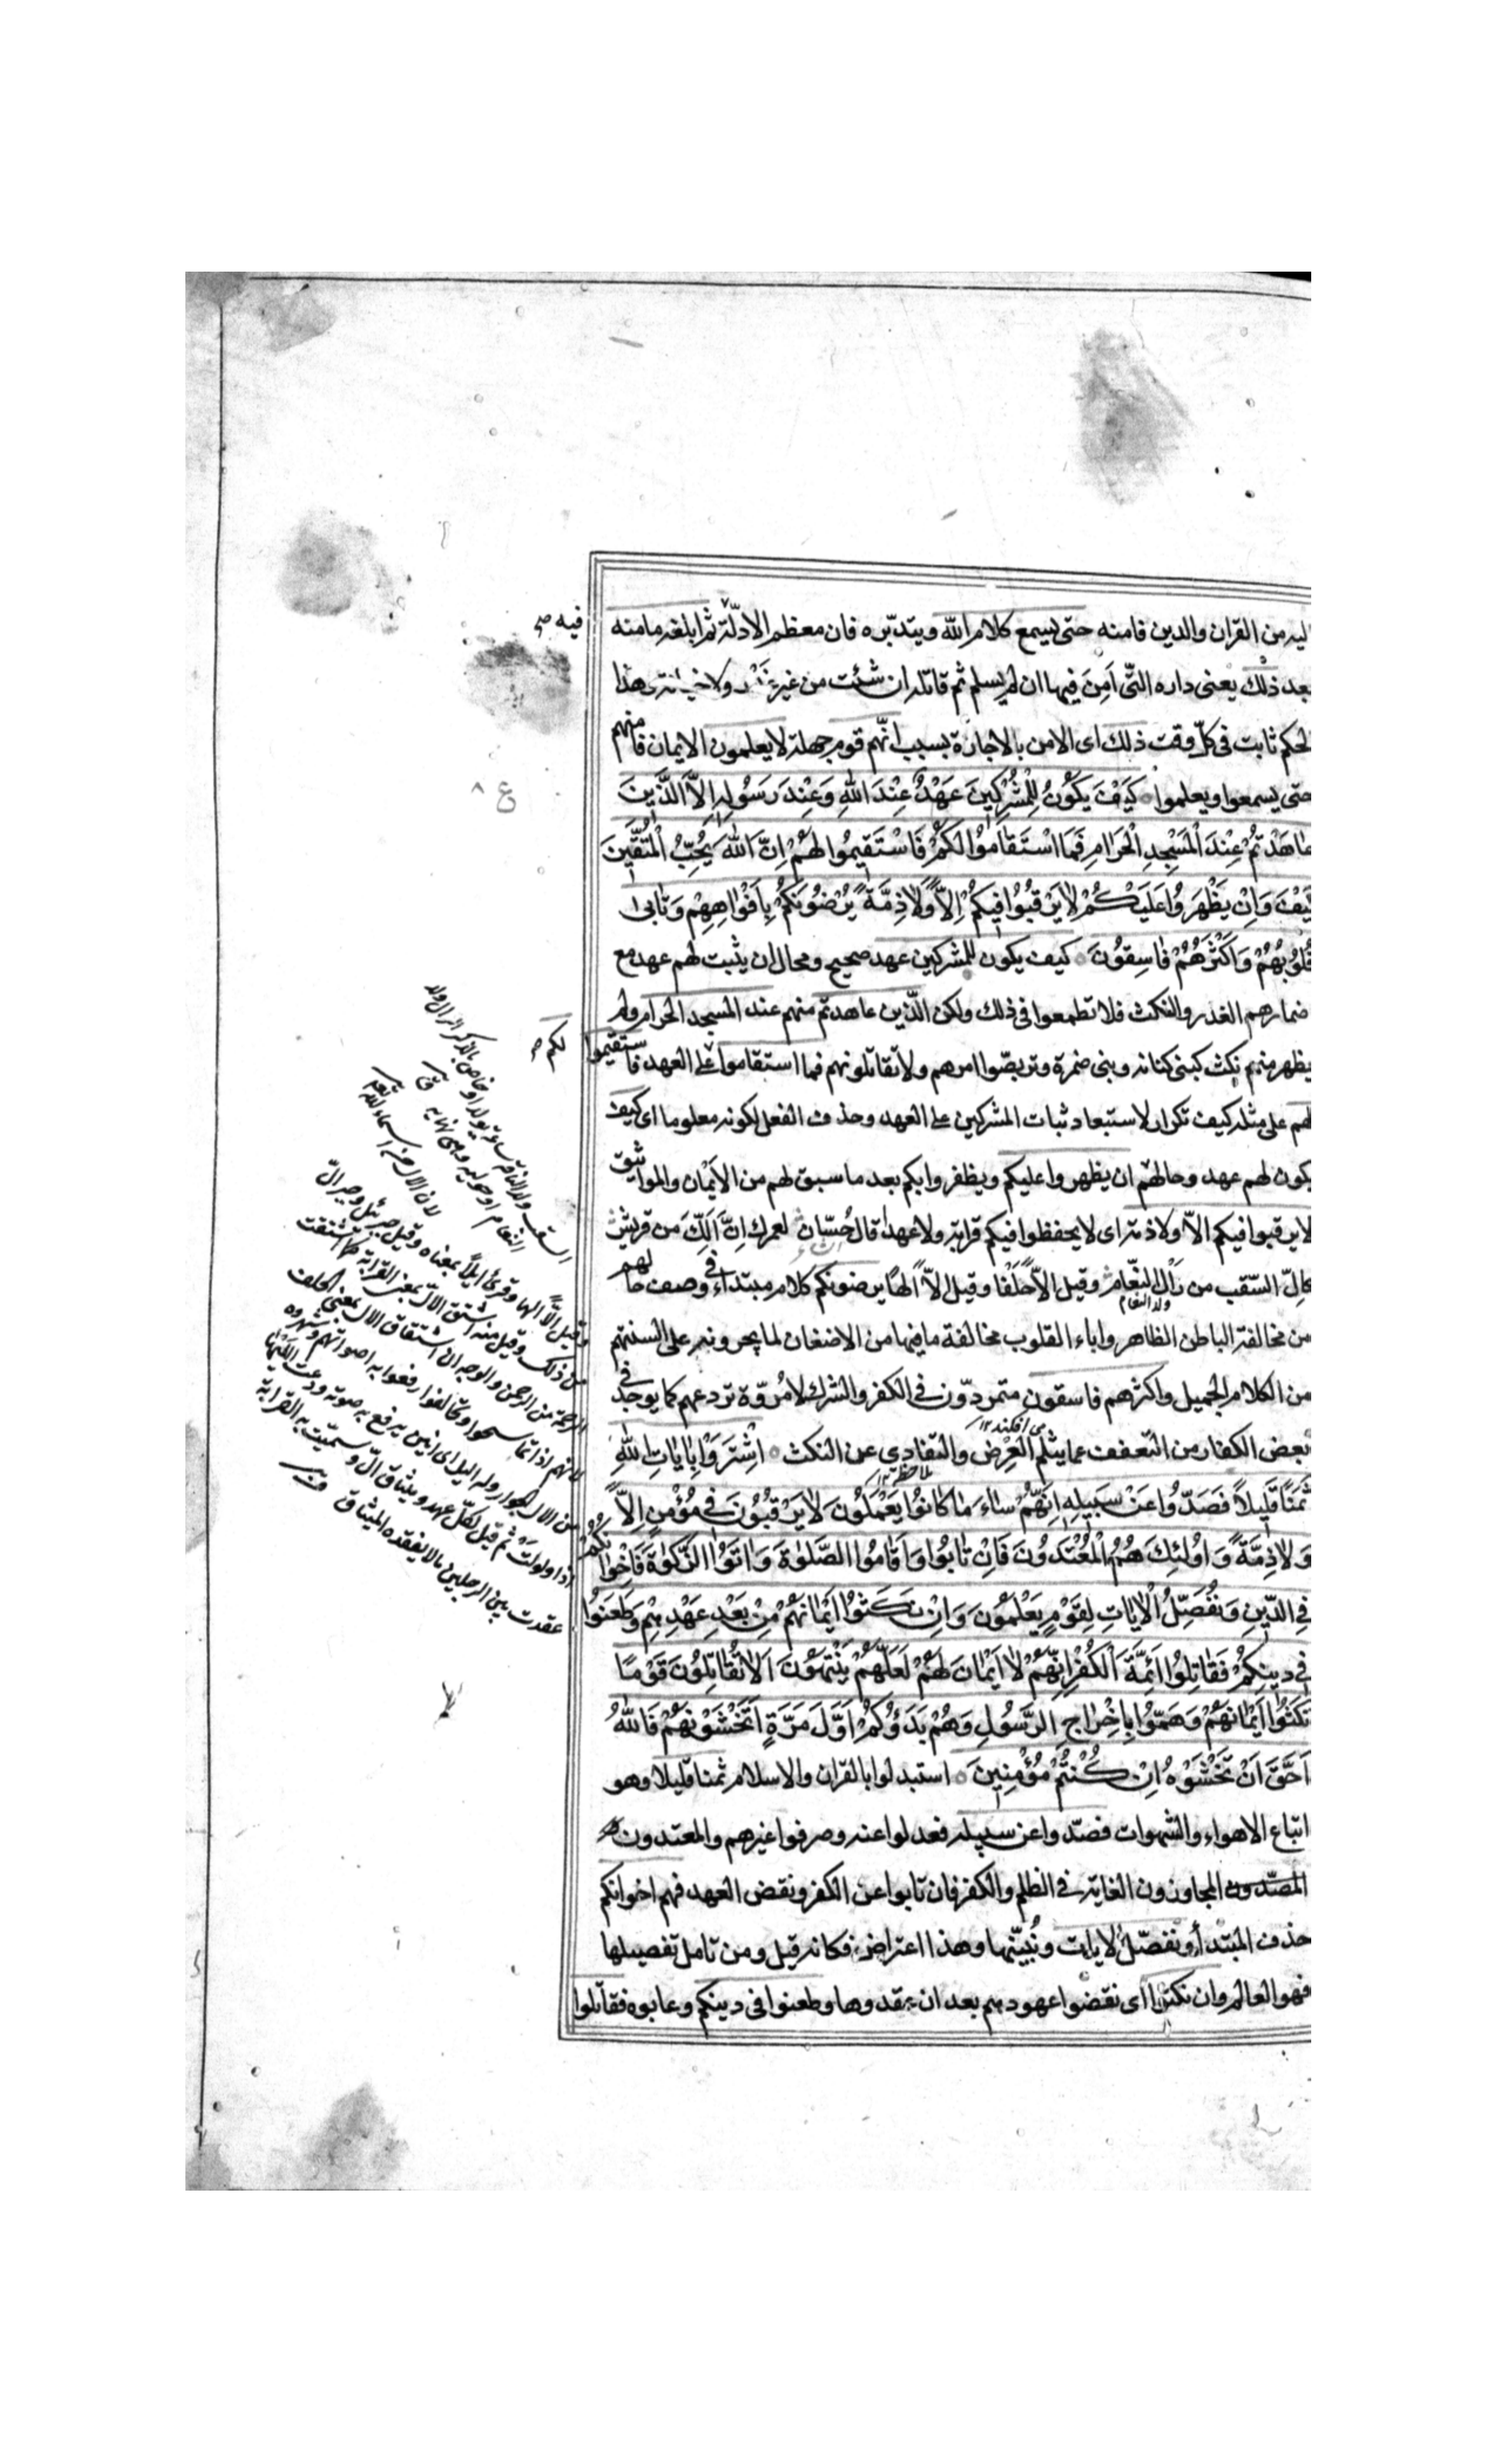 ليه من القران والدين فامنه حتى يسمع كلام الله ويتدبره فان معظم الادلّة ثم ابلغه مامنه
فيه صح
بعد ذلك يعنى داره التى اَمِنَ فيها ان لم يسلم ثم قاتله ان شئت من غير غدر ولا خيانة وهذا
لحكم ثابت فى كلّ وقت ذلك اى الامن بالاجارة بسبب انّهم قوم جهلة لا يعلمون الايمان فامنهم
حتى يسمعوا ويعلموا كَيْفَ يَكُونُ لِلْمُشْرِكِينَ عَهْدٌ عِنْدَ اللهِ وَعِنْدَ رَسُولِهِ اِلاَّ الَّذِينَ
ع ٨
عَاهَدْتُمْ عِنْدَ الْمَسْجِدِ الْحَرَامِ فَمَا اسْتَقَامُوا لَكُمْ فَاسْتَقِيمُوا لَهُمْ اِنَّ اللهَ يُحِبُّ الْمُتَّقِينَ
كَيْفَ وَاِنْ يَظْهَرُوا عَلَيْكُمْ لَا يَرْقُبُوا فِيكُمْ اِلاًّ وَلَا ذِمَّةً يُرْضُونَكُمْ بِاَفْوَاهِهِمْ وَتَابى
قُلُوبُهُمْ وَاَكْثَرُهُمْ فَاسِقُونَ كيف يكون للمشركين عهد صحيح ومحال ان يثبت لهم عهد مع
ضمارهم الغدر والنكث فلا تطمعوا فى ذلك ولكن الّذين عاهدتم منهم عند المسجد الحرام ولم
يظهر منهم نكث كبنى كنانه وبنى ضمرة وتربصّوا امرهم ولا تقاتلونهم فما استقاموا على العهد فاستقيموا
لكم صح
لهم على مثله كيف تكرار لاستبعاد ثبات المشركين على العهد وحذف الفعل لكونه معلوما اى كيف
يكون لهم عهد وحالهم ان يظهروا عليكم ويظفروا بكم بعد ما سبق لهم من الاَيْمان والمواثيق
لا يرقبوا فيكم الاّ ولا ذمة اى لا يحفظوا فيكم قرابة ولا عهدا قال حُسّان لعمرك اِنَّ اَلَّكَ من قريش
كالّ السّقب من رَاْل النّعام وقيل الاّ حلفا وقيل الاّ الها يرضونكم كلام مبتداء فى وصف حالهم
ولد النعام
من مخالفة الباطن الظاهر واباء القلوب مخالفة ما فيها من الاضغان لما يجرونه على السنتهم
من الكلام الجميل واكثرهم فاسقون متمردّون فى الكفر والشرك لا مُروّة تردعهم كما يوجد فى
بعض الكفار من التعفف عما يثلم العِرْض والتفادى عن النكث اِشْتَرَوْا بِاٰيَاتِ اللهِ
ثَمَنًا قَلِيلاً فَصَدُّوا عَنْ سَبِيلِهِ اِنَّهُمْ سَاءَ مَا كَانُوا يَعْمَلُونَ لَا يَرْقُبُونَ فِى مُؤْمِنٍ اِلاًّ
وَلَا ذِمَّةً وَاُولٰئِكَ هُمُ الْمُعْتَدُونَ فَاِنْ تَابُوا وَاَقَامُوا الصَّلٰوةَ وَاٰتَوُا الزَّكٰوةَ فَاِخْوَانُكُمْ
فِى الدِّينِ وَنُفَصِّلُ الْاٰيَاتِ لِقَوْمٍ يَعْلَمُونَ وَاِنْ نَكَثُوا اَيْمَانَهُمْ مِنْ بَعْدِ عَهْدِهِمْ وَطَعَنُوا
فِى دِينِكُمْ فَقَاتِلُوا اَئِمَّةَ الْكُفْرِ اِنَّهُمْ لَا اَيْمَانَ لَهُمْ لَعَلَّهُمْ يَنْتَهُونَ اَلَا تُقَاتِلُونَ قَوْمًا
نَكَثُوا اَيْمَانَهُمْ وَهَمُّوا بِاِخْرَاجِ الرَّسُولِ وَهُمْ بَدَؤُكُمْ اَوَّلَ مَرَّةٍ اَتَخْشَوْنَهُمْ فَاللهُ
اَحَقُّ اَنْ تَخْشَوْهُ اِنْ كُنْتُمْ مُؤْمِنِينَ استبدلوا بالقران والاسلام ثمنا قليلا وهو
اتباع الاهواء والشهوات فصدّوا عن سبيله فعدلوا عنه وصرفوا غيرهم والمعتدون
المجاوزون الغاية فى الظلم والكفر فان تابوا عن الكفر ونقض العهد فهم اخوانكم
حذف المبتدأ ونفصّل الايات ونُبيّنها وهذا اعتراض فكانه قيل ومن تامل تفصيلها
فهو العالم وان نكثوا اى نقضوا عهودهم بعد ان عقدوها وطعنوا فى دينكم وعابوه فقاتلوا
وقيل الاًّ الها وقرئ ايلاً بمعناه وقيل جبرئل وجبرالّ
من ذلك وقيل منه اشتق الالّ بمعنى القرابة كما اشتقت
الرحم من الرحمن والوجه ان اشتقاق الال بمعنى الحلف
لانهم اذا تماسحوا وتحالفوا رفعوا به اصواتهم وشهروه
من الال الجوار وله اليل اى انين يرفع به صوته ودعت الليها
اذا ولولت ثم قيل لكلّ عهد وميثاق الّ وسميّت به القرابة
عقدت بين الرجلين ما لا يعقده الميثاق